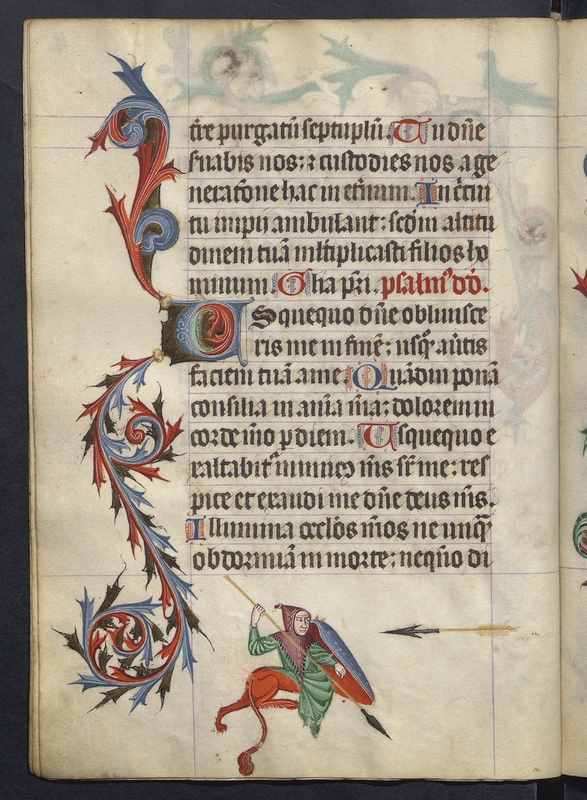 tr̄e purgatū septuplū. Tu dn̄e
s̄uabis nos: ⁊ custodies nos a ge
neratōne hac in et̄num. In c̄cui
tu impii ambulant: scd̄m altitu
dinem tuā ml̄tiplicasti filios ho
minum. Gl̄ia pr̄i. psalm᷒ dd̄.
Usquequo dn̄e obliuisce
ris me in finē: usq̄ȝ au̇tis
faciem tuā a me. Quādiu ponā
consilia in aīa m̄a: dolorem in
corde m̄o p̲ diem. Usquequo e
xaltabit᷑ inimic᷒ m̄s sr̄ me: res
pice et exaudi me dn̄e deus m̄s.
Illumina oc̄los m̄os ne unq̄ȝ
obdormiā in morte: neqūo di